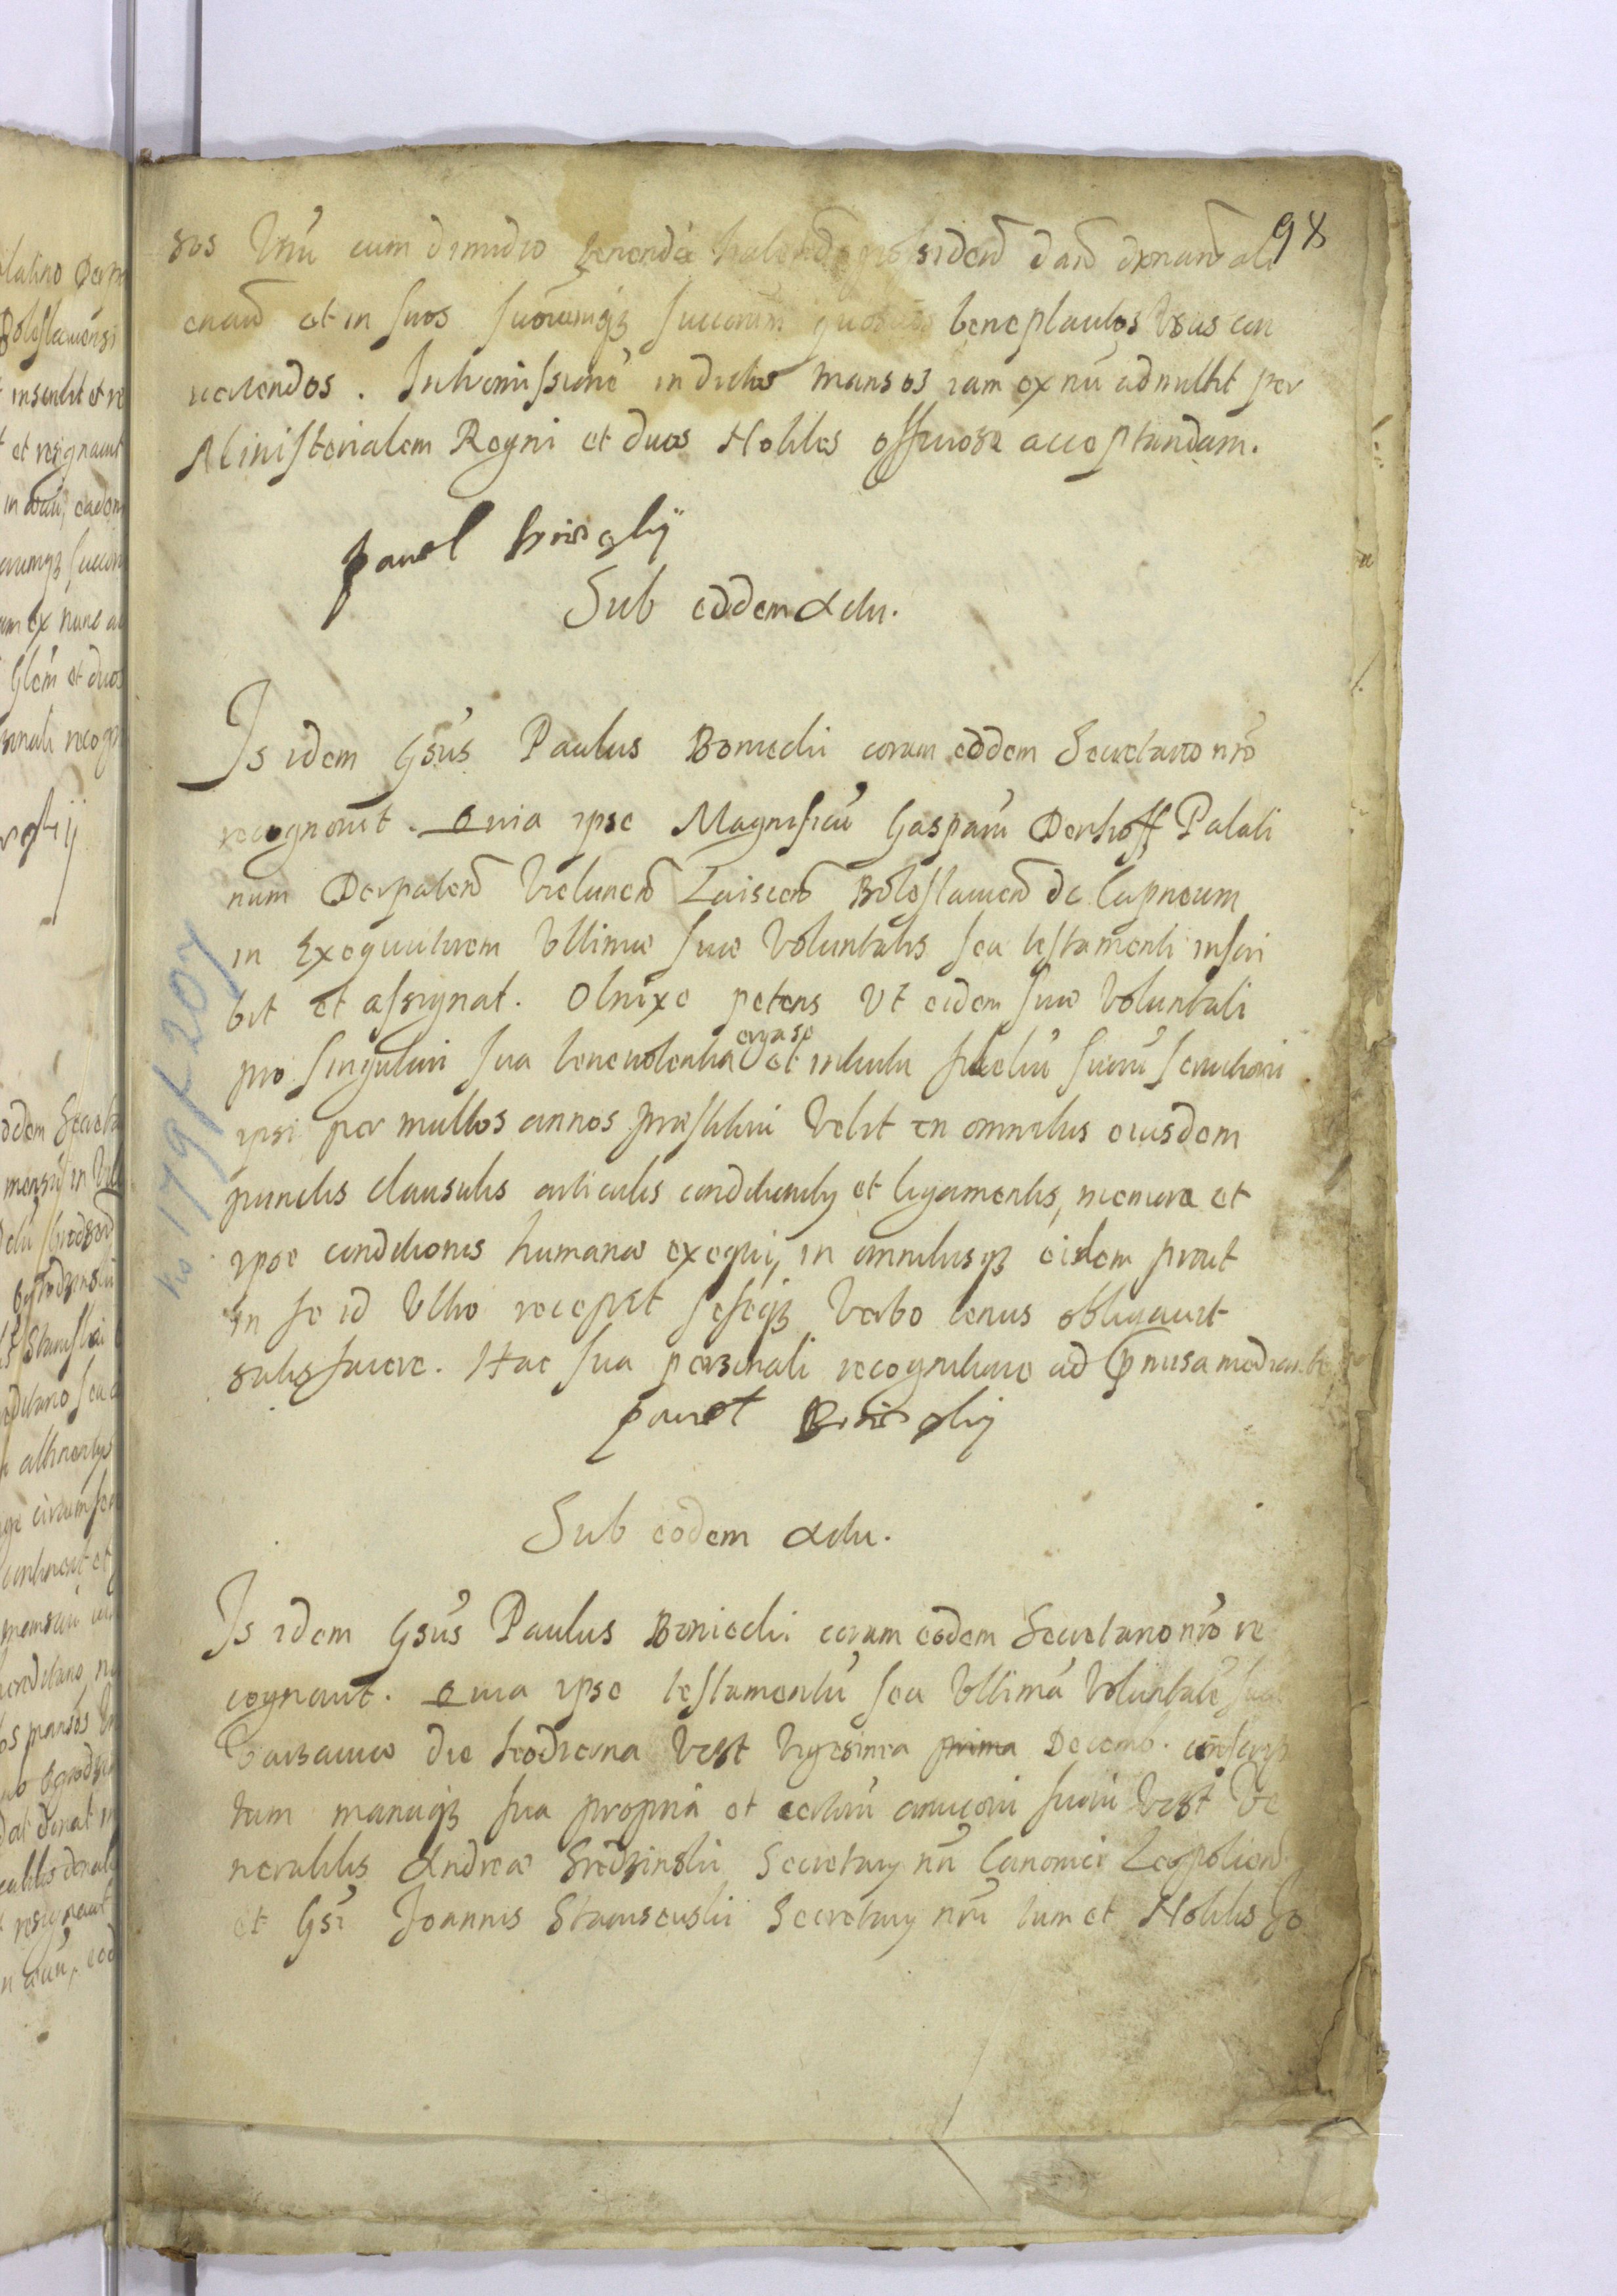 98
sos Unũ cum dimidio tenendũ habend possidend dand donand ali
enand et in suos suorumq₃ succorum quosvis beneplacitos Usus con
vertendos. Intromissionẽ in dictos mansos iam ex nũ admittit per
Ministerialem Regni et duos Nobiles officiose acceptandam.
Sub eodem Actu.
Is idem Gsũs Paulus Boniecki coram eodem Secretario nrõ
recognovit. Quia ipse Magnificũ Gasparũ Denhoff Palati
num Derpaten Vielunen Boleslavien de Capneum
in Exequutorem Ultimæ suæ Voluntatis seu testamenti inscri
bit et assignat. Obnixe petens Ut eidem suæ Voluntati
pro singulari sua benevolentia erga se et intuitu fideliũ suorũ servitiorũ
ipsi per multos annos præstitorũ Velit in omnibus eiusdem
punctis clausulis articulis conditionib₃ et ligamentis, memore et
ipse conditionis humanæ exequi, in omnibusq₃ eisdem prout
in se id Ultro recepit seseq₃ Verbo tenus obligavit
satisfacere. Hac sua personali recognitione ad præmissa mediante
Sub eodem Actu.
Is idem Gsũs Paulus Boniecki coram eodem Secretario nrõ re
cognovit. Quia ipse testamentũ seu Ultimã Voluntatẽ suã
Varsaviæ die hodierna Vest Vigesima prima Decemb. conscrip
tum manuq₃ sua propria et certorũ amicorũ suorũ Vest Ve
nerabilis Andreæ Srzedzinski Secretarij nri Canonici Leopolien
et Gsi Joannis Secretarij nri tum et Nobilis Jo
No 179 f 207